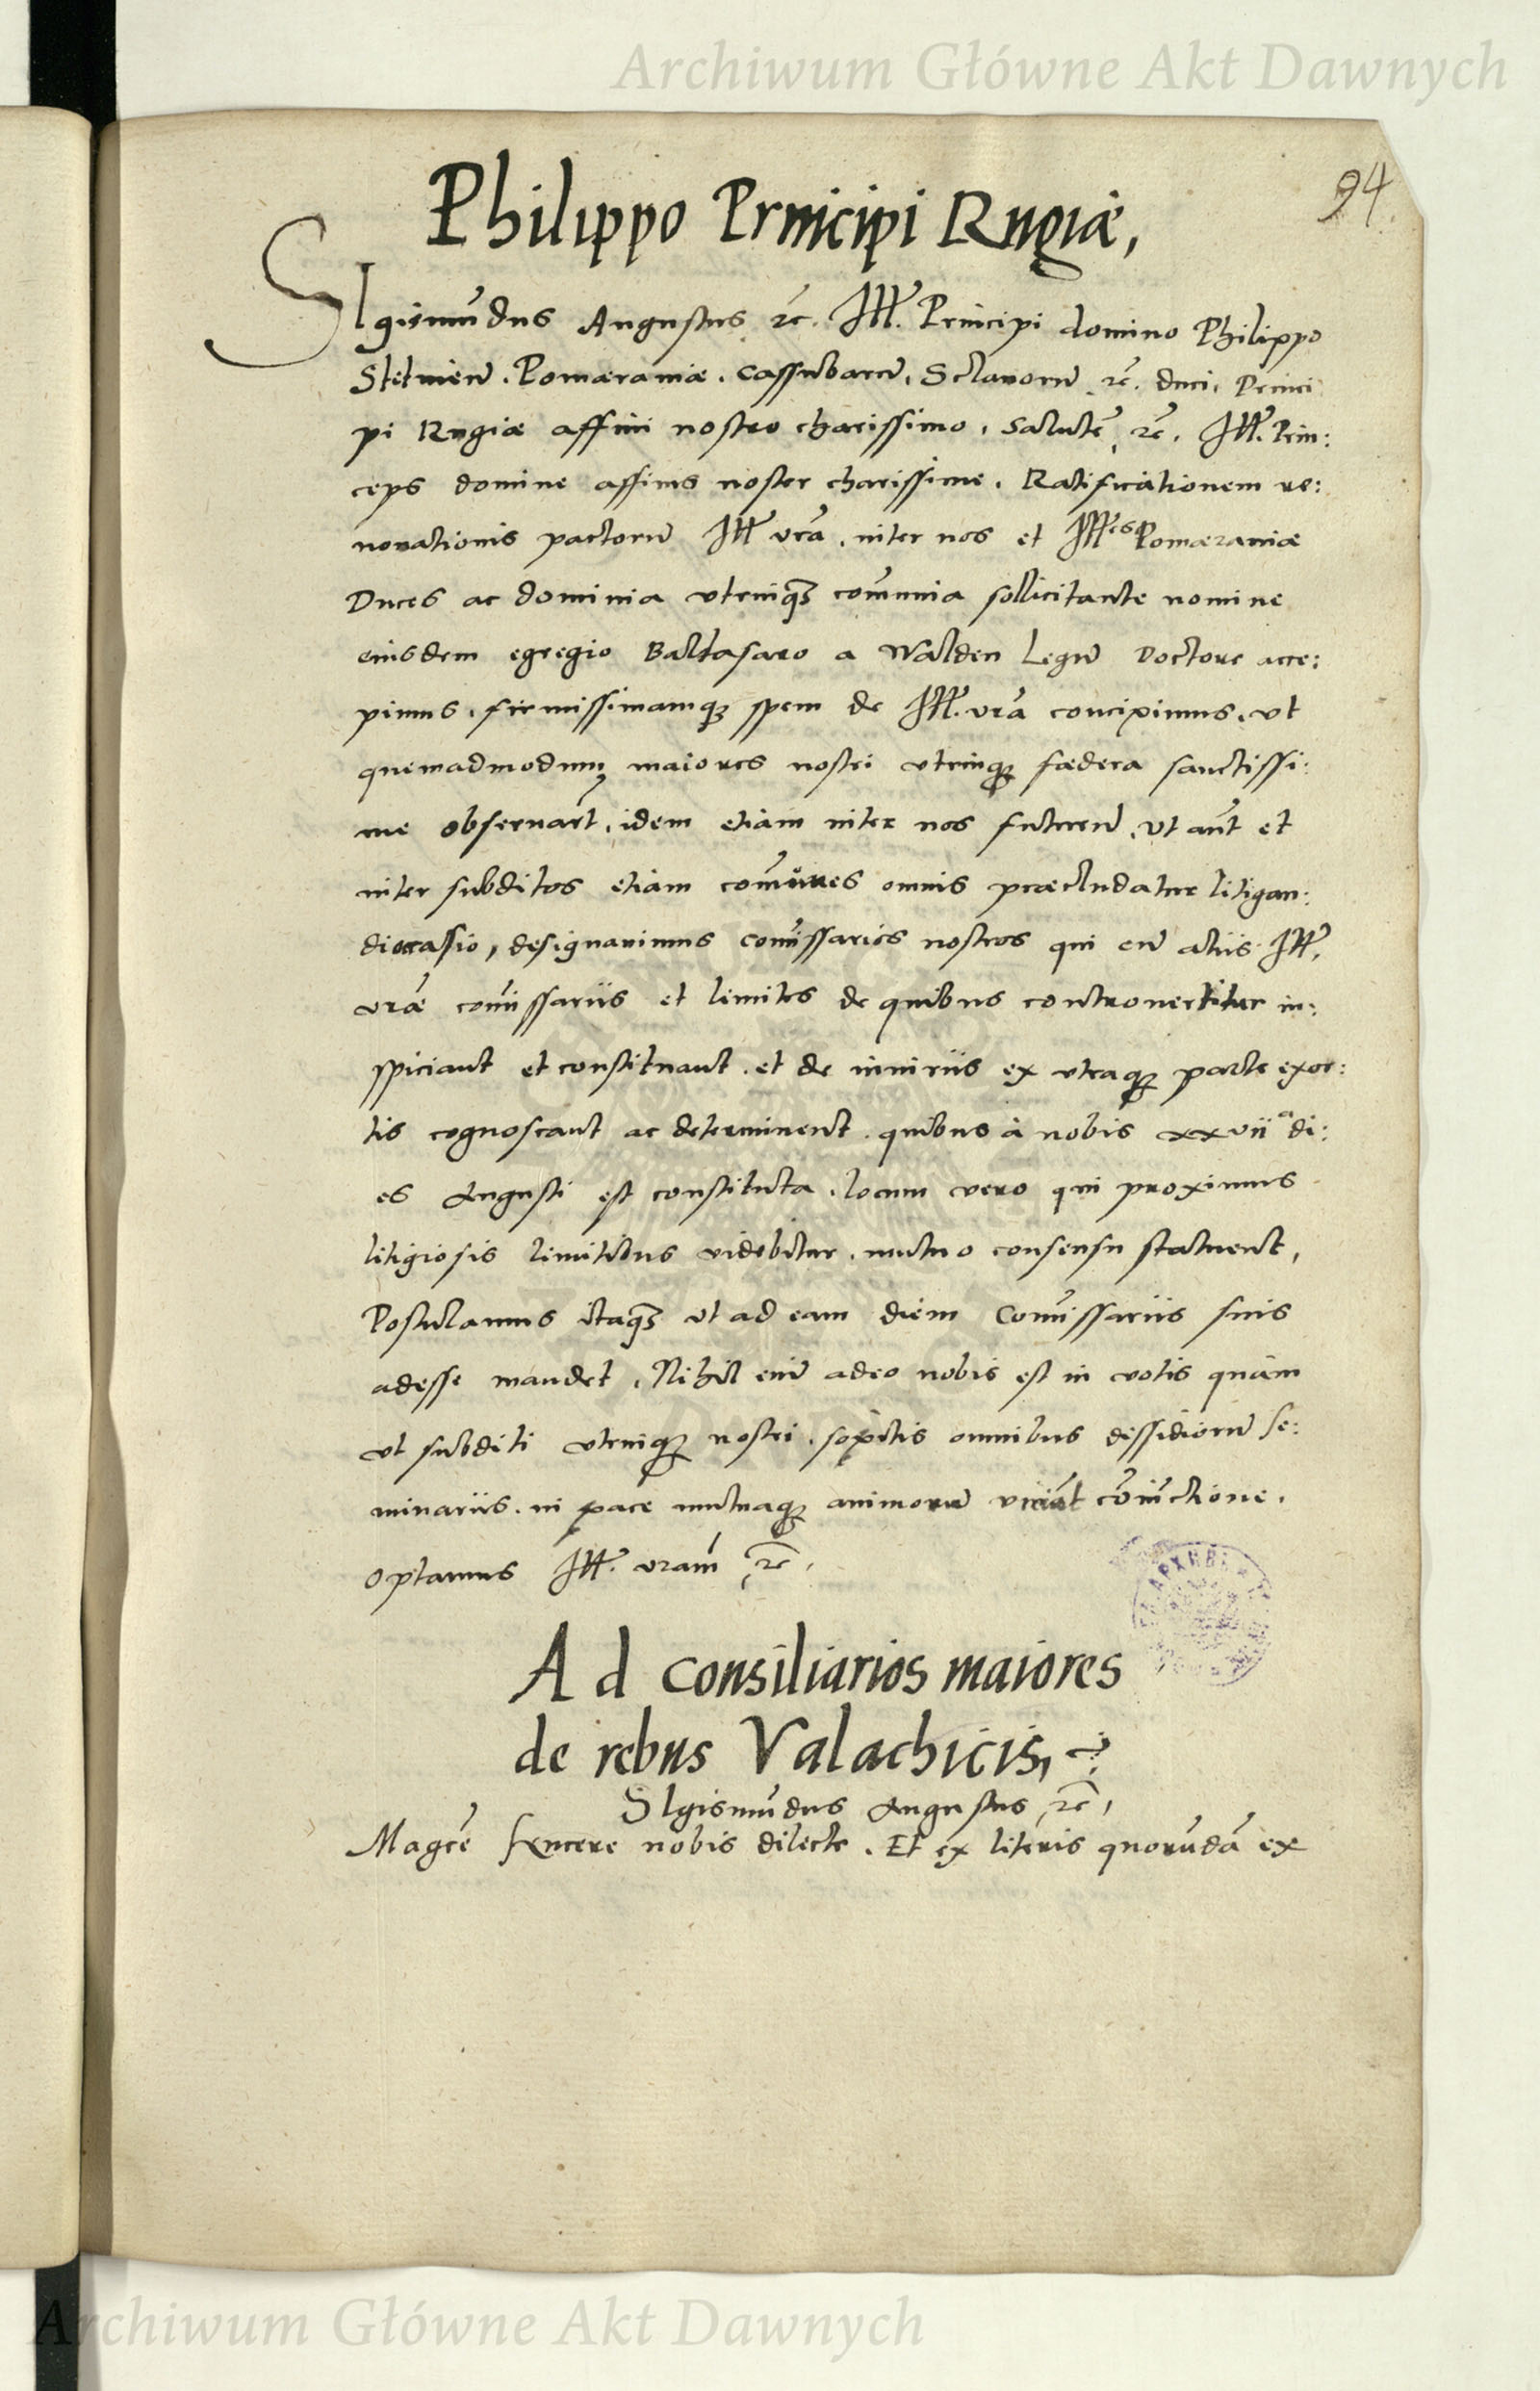 Archiwum Główne Akt Dawnych
94.
Philippo Principi Rugiæ,
SIgismūdus Augustus ꝛc. Ill. Principi domino Philippo
Stetinen̄. Pomæraniæ. Cassubarū. Sclavorū ꝛc. duci, Princi
pi Rugiæ affini nostro charissimo. Salutē ꝛc. Ill. Prin:
ceps domine affinis noster charissime. Ratificationem re:
novationis pactorū Ill vrā. inter nos et Ill.es Pomæraniæ
Duces ac dominia vtrinqꝫ com̄unia sollicitante nomine
eiusdem egregio Baltasaro a Walden Legū Doctore acce:
pimus. firmissimamqꝫ spem de Ill. vrā concipimus. vt
quemadmodum maiores nostri vtrinqꝫ fædera sanctissi:
me observarūt. idem etiam inter nos futurū. vt aūt et
inter subditos etiam com̄unes omnis præcludatur litigan:
di occasio, designavimus com̄issarios nostros qui cū aliis Ill.
vræ com̄issariis et limites de quibus controvertitur in:
spiciant et constituant. et de iniuriis ex vtraqꝫ parte exor:
tis cognoscant ac determinent. quibus à nobis xxvii a di:
es Augusti est constituta. locum vero qui proximus
litigiosis limitibus videbitur. mutuo consensu statuent,
Postulamus itaqꝫ vt ad eam diem Com̄issariis suis
adesse mandet. Nihil enī adeo nobis est in votis quàm
vt subditi vtrinqꝫ nostri. sopitis omnibus dissidiorū se:
minariis. in pace mutuaqꝫ animorū vivāt cōiūctione.
optamus Ill. vram̄ ꝛc.
Ad consiliarios maiores
de rebus Valachicis,
SIgismūdus Augustus ꝛc,
Magcē syncere nobis dilecte. Et ex literis quorūdā ex
Archiwum Główne Akt Dawnych